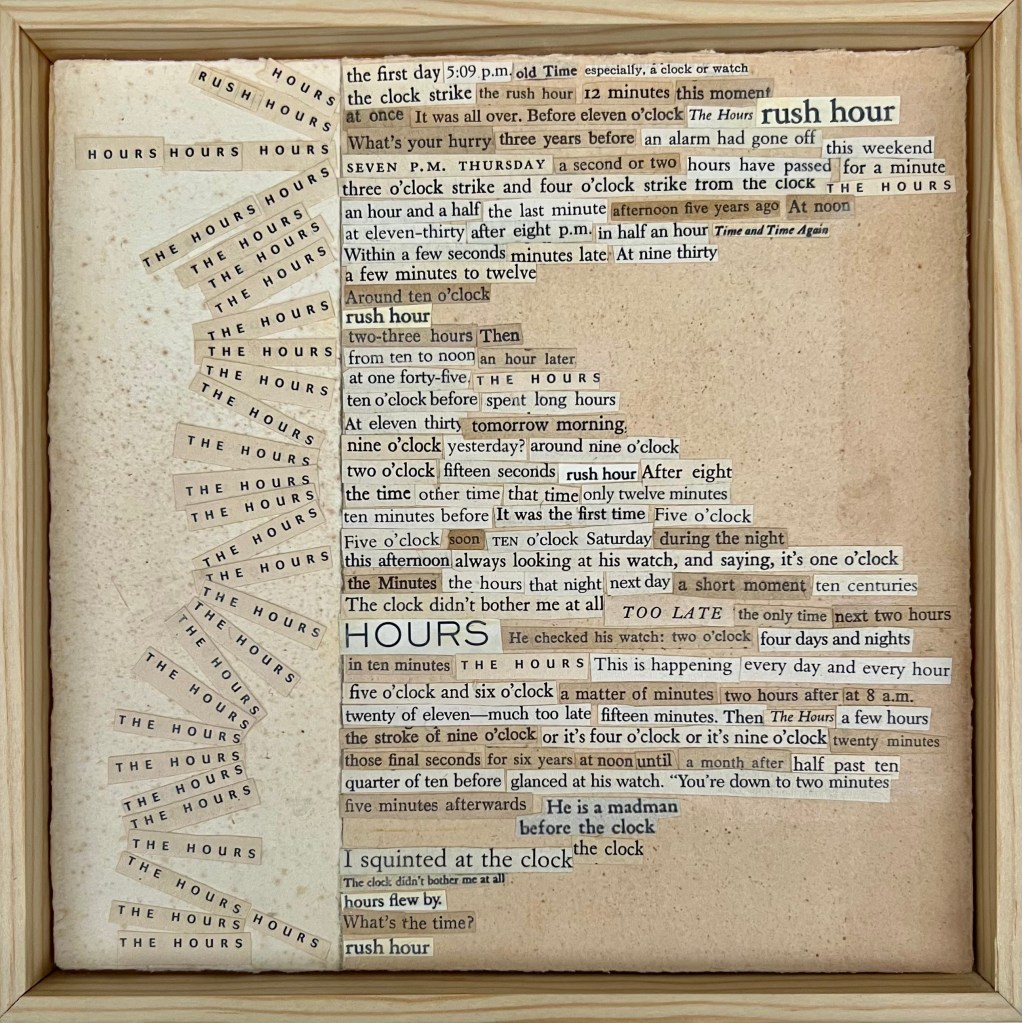 HOURS
RUSH HOURS
HOURS HOURS HOURS
THE HOURS HOURS
THE HOURS
THE HOURS
THE HOURS
THE HOURS
THE HOURS
THE HOURS
THE HOURS
THE HOURS
THE HOURS
THE HOURS
THE HOURS
THE HOURS
THE HOURS
THE HOURS
THE HOURS
THE HOURS
THE HOURS
THE HOURS
THE HOURS
THE HOURS
THE HOURS
THE HOURS
THE HOURS HOURS
THE HOURS
THE HOURS
the first day 5:09 p.m. old Time especially, a clock or watch
the clock strike the rush hour 12 minutes this moment
at once It was all over. Before eleven o'clock The Hours rush hour
What's your hurry three years before an alarm had gone off this weekend
SEVEN P.M. THURSDAY a second or two hours have passed for a minute
three o'clock strike and four o'clock strike from the clock THE HOURS
an hour and a half the last minute afternoon five years ago At noon
at eleven-thirty after eight p.m. in half an hour Time and Time Again
Within a few seconds minutes late. At nine thirty
a few minutes to twelve
Around ten o'clock
rush hour
two-three hours Then
from ten to noon an hour later
at one forty-five, THE HOURS
ten o'clock before spent long hours
At eleven thirty tomorrow morning.
nine o'clock yesterday? around nine o'clock
two o'clock fifteen seconds rush hour After eight
the time other time that time only twelve minutes
ten minutes before It was the first time Five o'clock
Five o'clock soon TEN o'clock Saturday during the night
this afternoon always looking at his watch, and saying, it's one o'clock
the Minutes the hours that night next day a short moment ten centuries
The clock didn't bother me at all TOO LATE the only time next two hours
HOURS He checked his watch: two o'clock four days and nights
in ten minutes THE HOURS This is happening every day and every hour
five o'clock and six o'clock a matter of minutes two hours after at 8 a.m.
twenty of eleven—much too late fifteen minutes. Then The Hours a few hours
the stroke of nine o'clock or it's four o'clock or it's nine o'clock twenty minutes
those final seconds for six years at noon until a month after half past ten
quarter of ten before glanced at his watch. "You're down to two minutes
five minutes afterwards He is a madman
before the clock
I squinted at the clock the clock
The clock didn't bother me at all
hours flew by.
What's the time?
rush hour